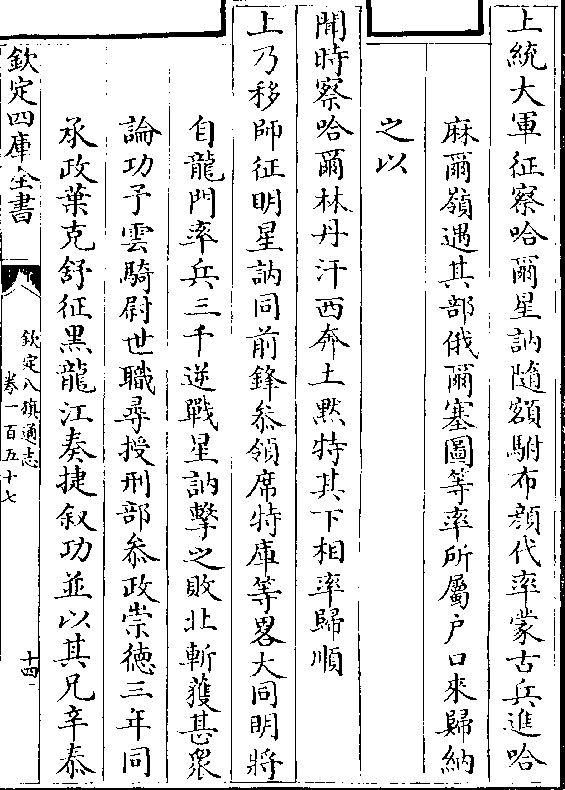 上統大軍征察哈爾星訥隨額駙布顔代率蒙古兵進哈
麻爾嶺遇其部俄爾塞圖等率所屬户口來歸納
之以
聞時察哈爾林丹汗西奔土黙特其下相率歸順
上乃移師征明星訥同前鋒叅領席特庫等畧大同明將
自龍門率兵三千逆戰星訥擊之敗北斬獲甚衆
論功予雲騎尉世職尋授刑部叅政崇徳三年同
承政葉克舒征黒龍江奏捷叙功並以其兄辛泰
欽定四庫全書
欽定八旗通志
卷一百五十七
十四